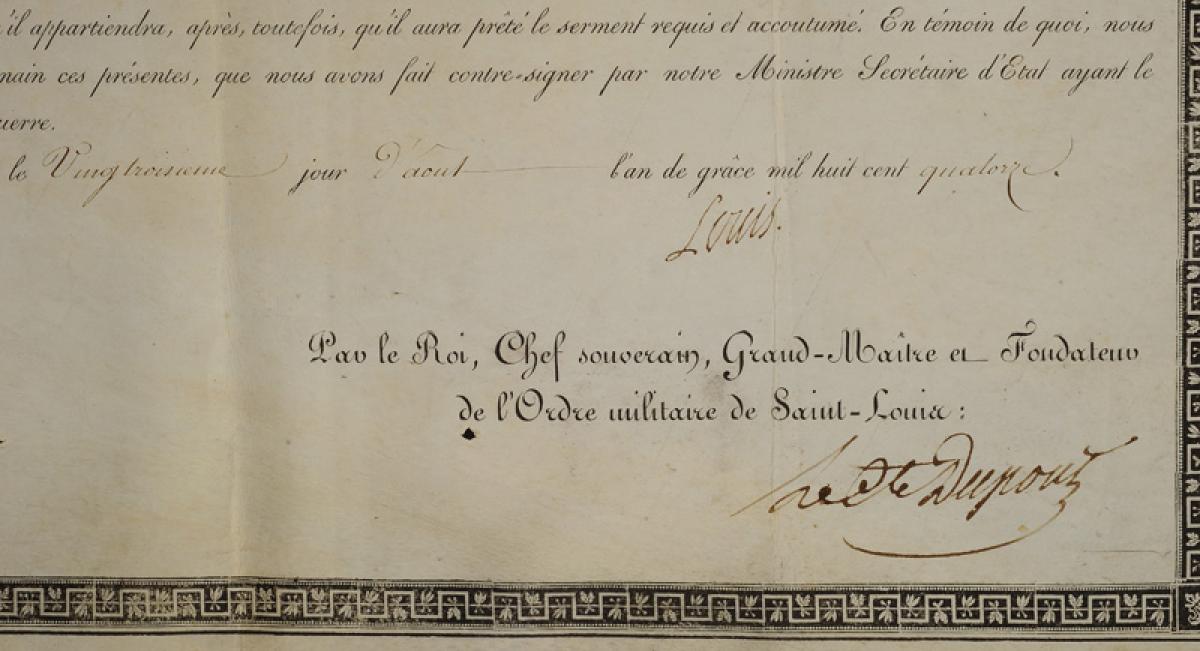 'il appartiendra, après, toutefois, qu'il aura prêté le serment requis et accoutumé. En témoin de quoi, nous
main ces présentes, que nous avons fait contre-signer par notre Ministre Secrétaire d'Etat ayant le
uerre.
le Vingtroisieme jour D'août l'an de grâce mil huit cent quatorze.
Louis.
Par le Roi, Chef souverain, Grand-Maître et Fondateur
de l'Ordre militaire de Saint-Louis :
Le Cte Dupont